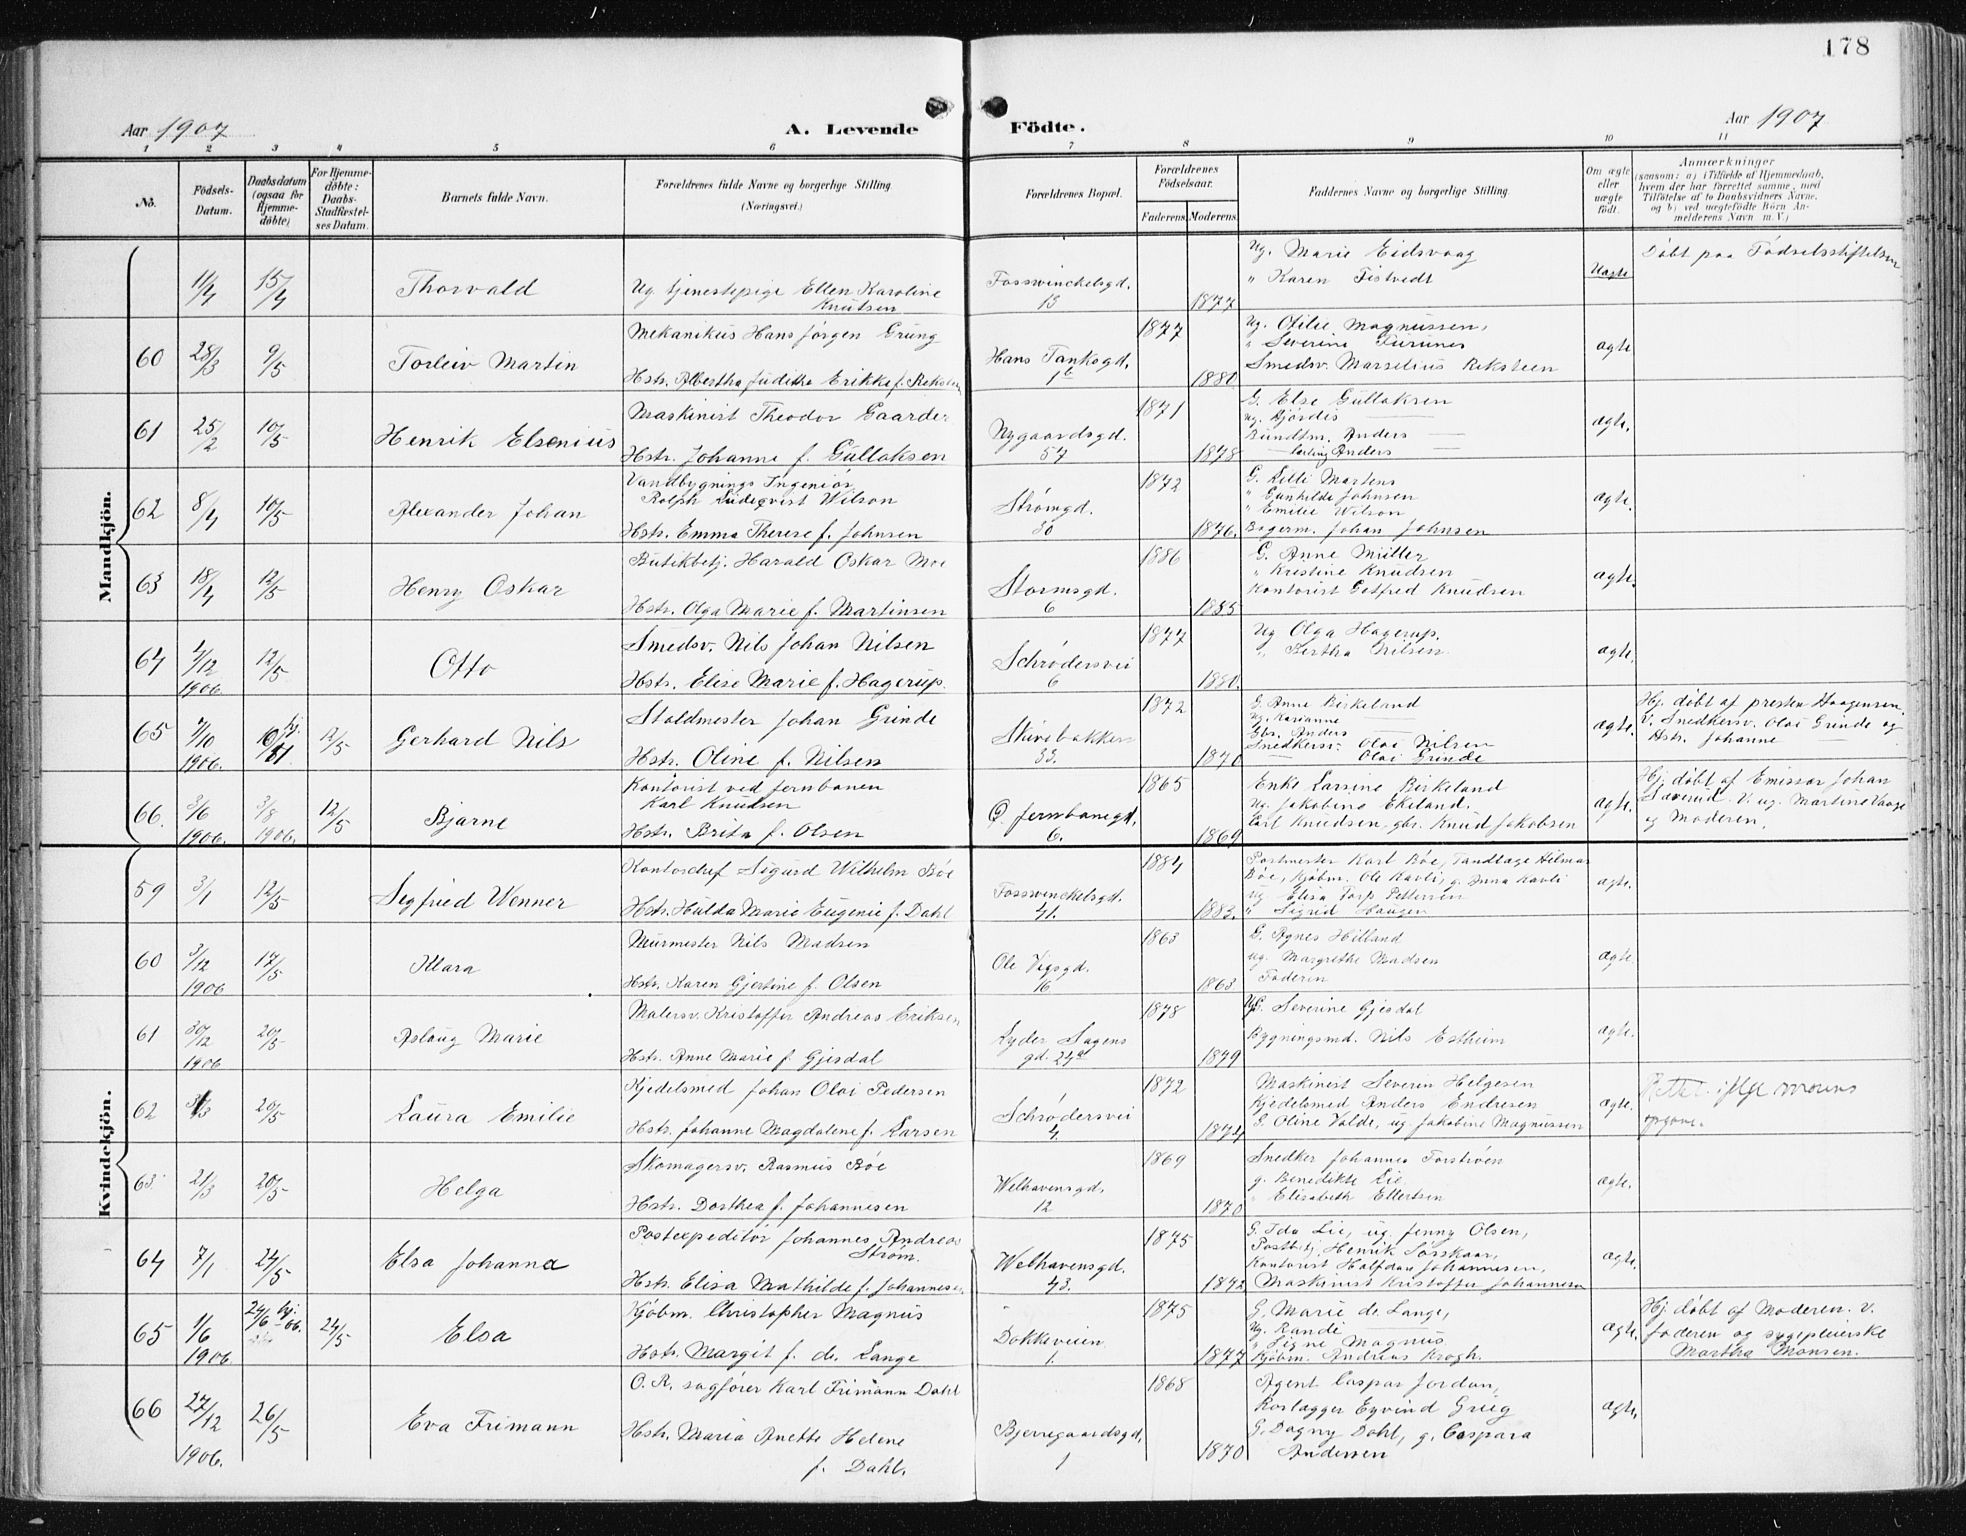 178
Aar 1907
A. Levende Födte.
Aar 1907
1 2 3 4 5 6 7 8 9 10 11
No.
Födsels-Datum.
Daabsdatum (ogsaa for Hjemmedöbte)
For Hjemmedöbte: Daabs-Stadfæstelses Datum.
Barnets fulde Navn.
Forældrenes fulde Navne og borgerlige Stilling. (Næringsvei.)
Forældrenes Bopæl.
Forældrenes Födselsaar.
Faderens. Moderens.
Faddernes Navne og borgerlige Stilling.
Om ægte eller uægte födt.
Anmærkninger
(saasom: a) i Tilfælde af Hjemmedaab, hvem der har forrettet samme, med Tilföielse af to Daabsvidners Navne, og b) ved uægtefödte Börn Anmelderens Navn m. V.)
Mandkjön.
11/4 15/4 Thorvald
Ug. tjenestepige Ellen Karoline Knutsen
Fosswinckelsgd. 13
1877
Ug. Marie Eidsvaag
" Karen Tistvedt
Uægte
Döbt paa Födselsstiftelsen
60 28/3 9/5 Torleiv Martin
Mekanikus Hans Jörgen Grung
Hstr. Albertha Juditha Erikke f. Reksteen
Hans Tanksgd. 1b
1877 1880
Ug. Otilie Magnussen,
" Severine
Smedsv. Marselius Reksteen
ægte
61 25/2 10/5 Henrik Elsenius
Maskinist Theodor Gaarder
Hstr. Johanne f. Gullaksen
Nygaardsgd. 57
1871 1878
G. Else Gullaksen
Ug. Hjördis —
Bundtm. Anders —
— Anders —
ægte.
62 8/4 10/5 Alexander Johan
Vandbygnings Ingeniör
Rolph Lindeqvist Wilson
Hstr. Emma Therese f. Johnsen
Strömgd. 30
1872 1876.
G. Lilli Martens
" Gunhilde Johnsen
" Emilie Wilson
Bagerm. Johan Johnsen
ægte.
63 18/4 12/5 Henry Oskar
Butikbetj. Harald Oskar Moe
Hstr. Olga Marie f. Martinsen
Stormsgd. 6
1886 1885
G. Anne Müller
" Kristine Knudsen
Kontorist Gotfred Knudsen
ægte.
64 7/12 1906. 12/5 Otto
Smedsv. Nils Johan Nilsen
Hstr. Elise Marie f. Hagerup.
Schrödersvei 6
1877 1880.
Ug Olga Hagerup.
" Bertha Nilsen.
ægte.
65 7/10 1906. 12/5 Gerhard Nils
Staldmester Johan Grinde
Hstr. Oline f. Nilsen
Skivebakken 33.
1872 1870
G. Anne Birkeland
Ug. Marianne
Gbr. Anders —
Snedkersv. Olai Nilsen
— Olai Grinde
ægte.
Hj. döbt af presten Haagensen.
V. Snedkersv. Olai Grinde og
Hstr. Johanne
66. 3/6 1906. 3/8 1906. 12/5 Bjarne
Kontorist ved jernbanen
Karl Knudsen
Hstr. Brita f. Olsen
Ø. jernbanegd. 6.
1865 1869
Enke Larsine Birkeland
Ug. Jakobine Ekeland.
Carl Knudsen, gbr. Knud Jakobsen
ægte.
Hj. döbt af Emissær Johan
Sæverud. V. ug. Martine Vaage
og Moderen.
Kvindekjön.
59 3/1 12/5 Segfried Wenner
Kontorchef Sigurd Wilhelm Böe
Hstr. Hulda Marie Eugenie f. Dahl
Fosswinckelsgd. 41.
1884 1883.
Postmester Karl Böe, Tandlæge Hilmar
Böe, Kjöbm. Ole Kavli, g. Inna Kavli
Ug Elisa Torp Pettersen
" Sigrid Haugen
ægte.
60 3/12 1906 17/5 Klara
Murmester Nils Madsen
Hstr. Karen Gjertine f. Olsen
Ole Vigsgd. 16
1863 1863
G. Agnes Hilland
ug. Margrethe Madsen
Faderen
ægte.
61 30/12 1906 20/5 Aslaug Marie
Malersv. Kristoffer Andreas Eriksen
Hstr. Anne Marie f. Gjesdal
Lyder Sagens gd. 24a
1878 1879
G. Severine Gjesdal
Bygningsmd. Nils Estheim
ægte.
62 20/5 Laura Emilie
Kjedelsmed Johan Olai Pedersen
Hstr. Johanne Magdalene f. Larsen
Schrödersvei 4
1872 1874
Maskinist Severin Helgesen
Kjedelsmed Anders Endresen
G. Oline Valde, ug. Jakobine Magnussen
ægte.
Rettet ifölge morens
opgave.
63 21/3 20/5 Helga
Skomagersv. Rasmus Böe
Hstr. Dorthea f. Johannesen
Welhavensgd. 12
1869 1870
Snedker Johannes Torströen
g. Benedikte Lie
" Elisabeth Ellertsen
ægte.
64 7/1 24/5 Elsa Johanna
Postexpeditör Johannes Andreas Ström.
Hstr. Elisa Mathilde f. Johannesen.
Welhavensgd. 43.
1875 1872
G. Ida Lie, ug. Jenny Olsen,
Postbetj. Henrik Sörskaar,
Kontorist Halfdan Johannesen,
Maskinist Kristoffer Johannesen
ægte.
65 1/6 1906 24/6 hj. 06. 24/5 Elsa
Kjöbm. Christopher Magnus
Hstr. Margit f. de Lange
Dokkeveien 1.
1875 1877
G. Marie de Lange,
Ug. Randi —
" Signe Magnus
Kjöbm. Andreas Krogh.
ægte.
Hj. döbt af Moderen. V.
faderen og sygepleierske
Martha Monsen.
66 27/12 1906. 26/5 Eva Frimann
O. R. sagförer Karl Frimann Dahl
Hstr. Maria Anette Helene
f. Dahl.
Bjerregaardsgd. 1
1868 1870
Agent Caspar Jordan,
Korlægger Eyvind Grieg
G. Dagny Dahl, g. Caspara
Andersen
ægte.